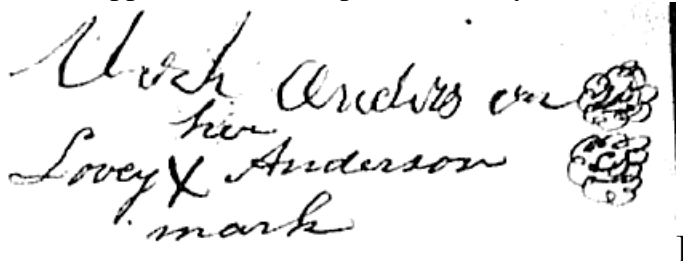 Anderson
her
Lovey X Anderson
mark